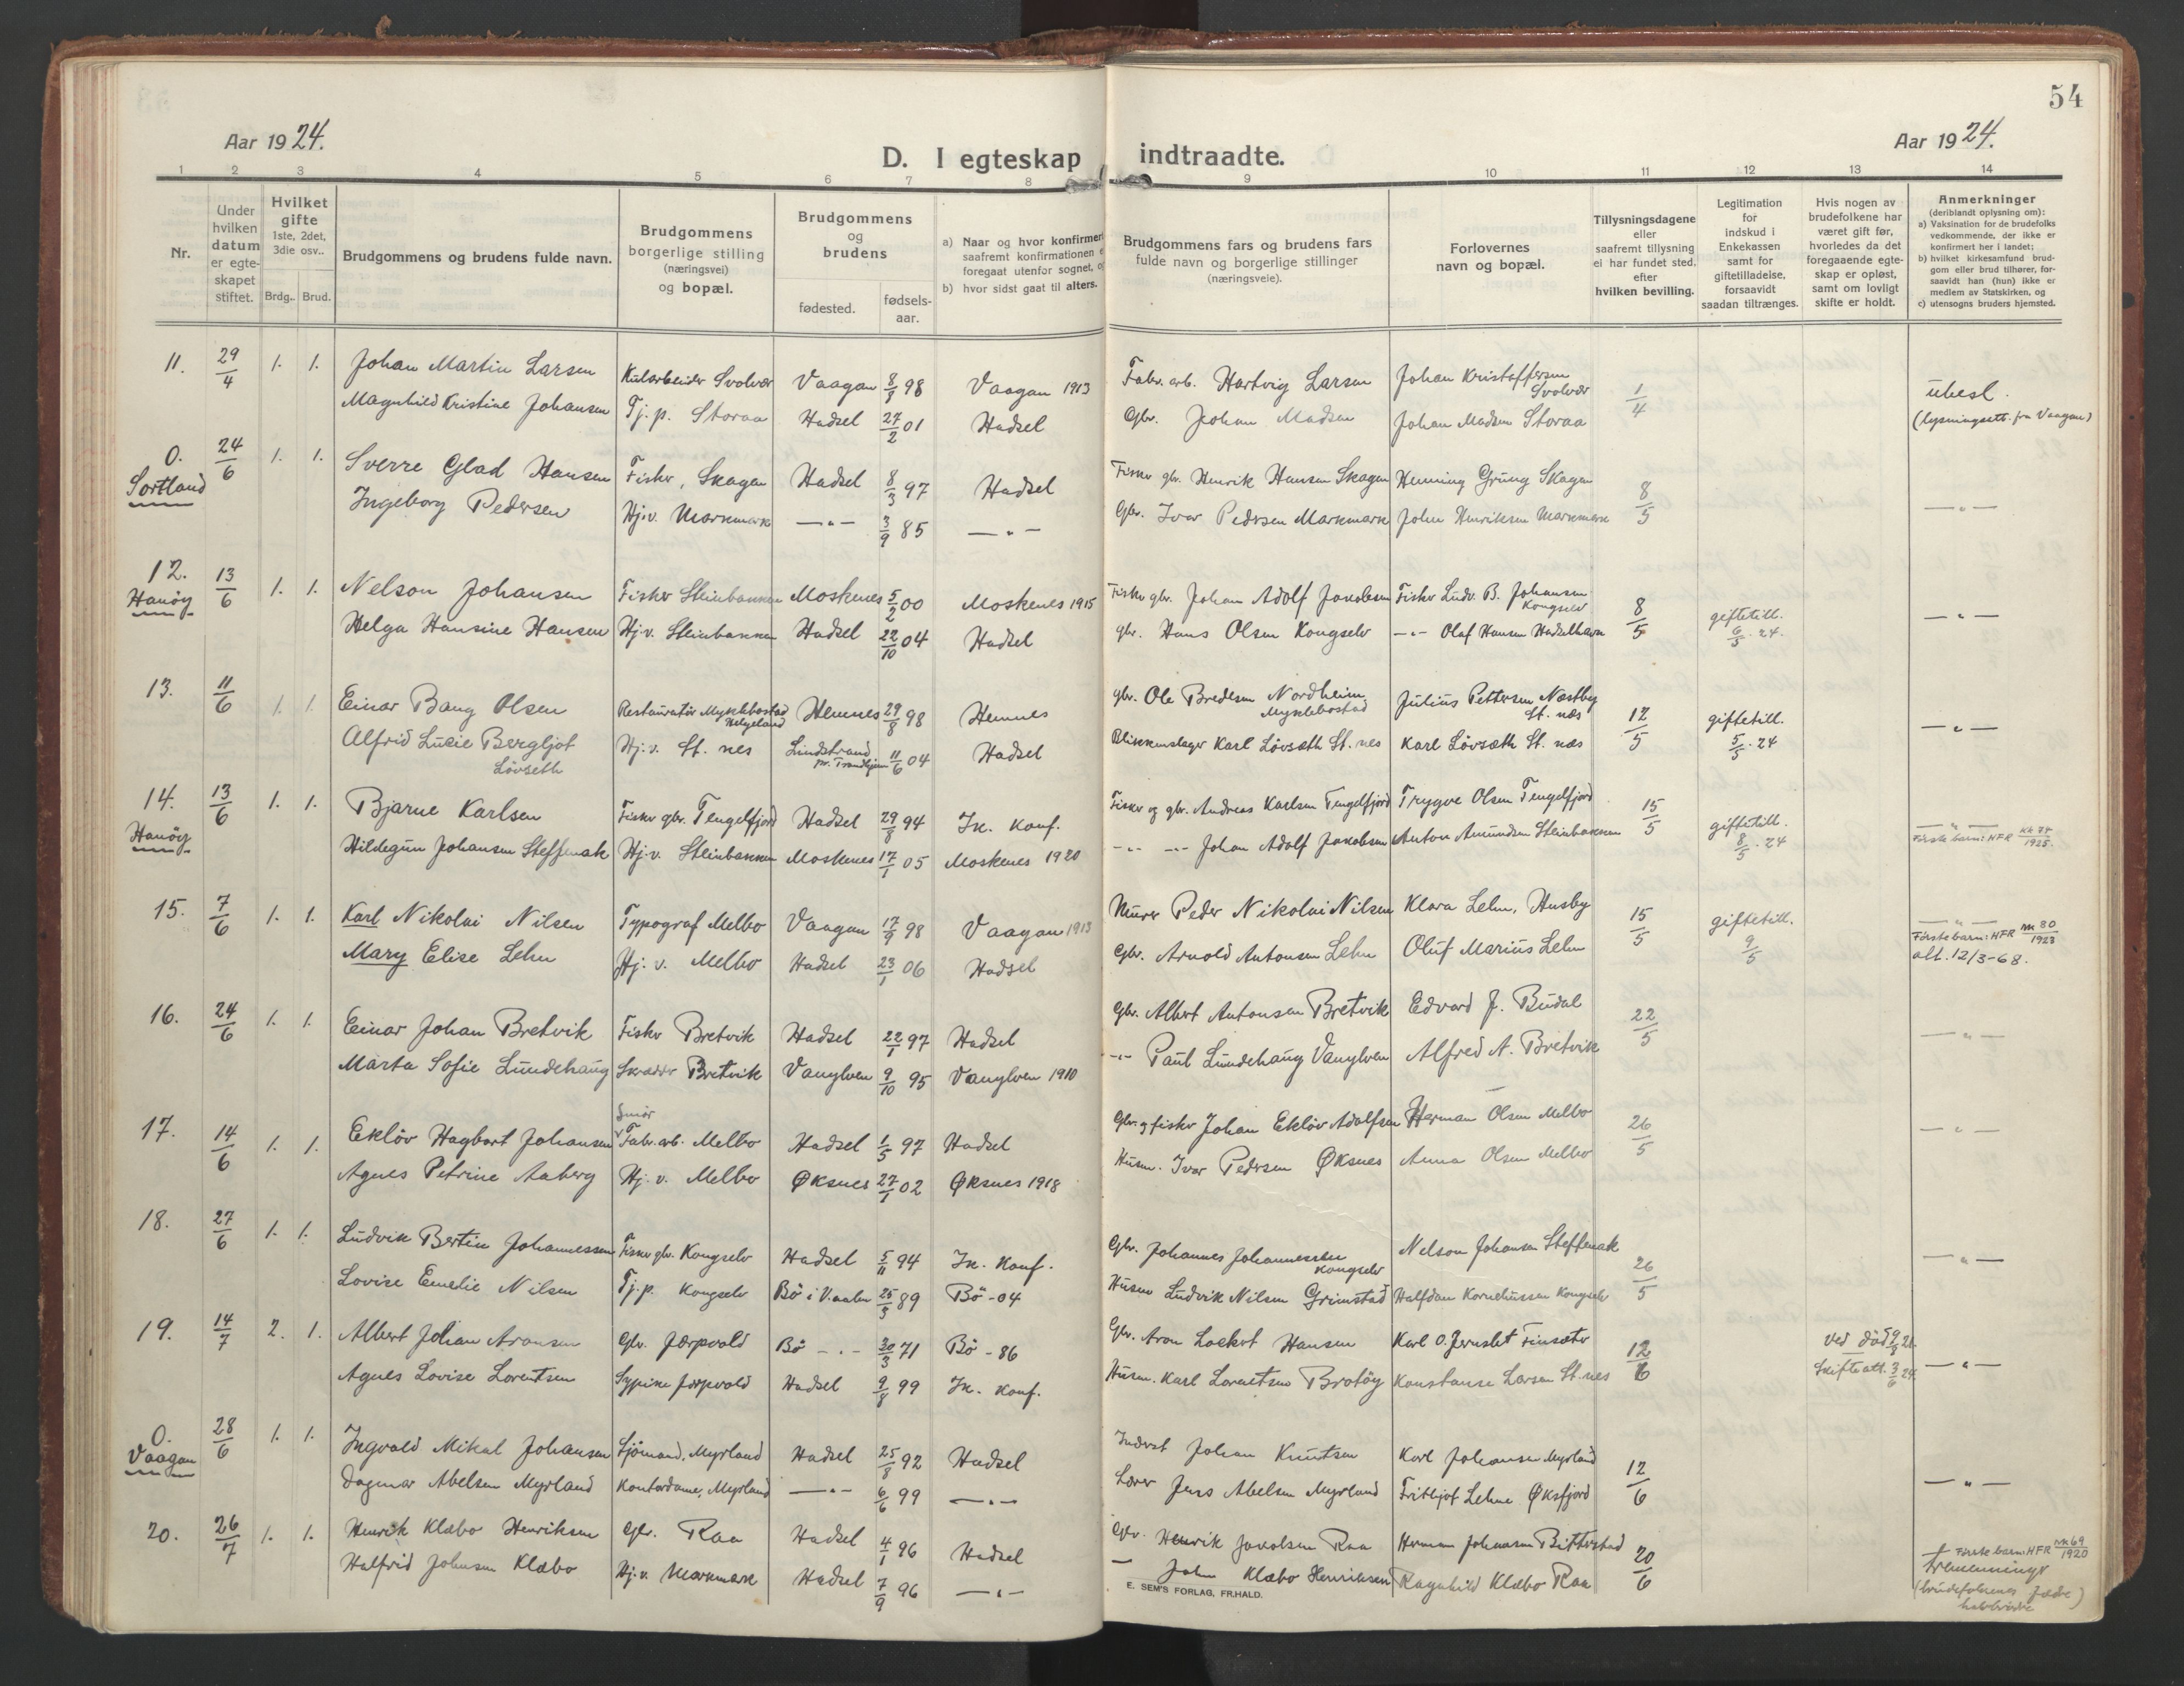 54
Aar 1924.
Aar 1924.
D. I egteskap indtraadte.
1 2 3 4 5 6 7 8 9 10 11 12 13 14
Nr.
Under hvilken datum er egteskapet stiftet.
Hvilket gifte 1ste, 2det, 3die osv..
Brdg.. Brud.
Brudgommens og brudens fulde navn.
Brudgommens borgerlige stilling (næringsvei) og bopæl.
Brudgommens og brudens
fødested.
fødselsaar.
a) Naar og hvor konfirmert saafremt konfirmationen foregaat utenfor sognet,
b) hvor sidst gaat til alters.
Brudgommens fars og brudens fars fulde navn og borgerlige stillinger (næringsveie).
Forlovernes navn og bopæl.
Tillysningsdagene eller saafremt tillysning ei har fundet sted, efter hvilken bevilling.
Legitimation for indskud i Enkekassen samt for giftetilladelse, forsaavidt saadan tiltrænges.
Hvis nogen av brudefolkene har været gift før, hvorledes da det foregaaende egteskap er opløst, samt om lovligt skifte er holdt.
Anmerkninger
(deriblandt oplysning om):
a) Vaksination for de brudefolks vedkommende, der ikke er konfirmert her i landet;
b) hvilket kirkesamfund brudgom eller brud tilhører, forsaavidt han (hun) ikke er medlem av Statskirken, og
c) utensogns bruders hjemsted.
11. 29/4 1. 1. Johan Martin Larsen Kularbeider Svolvær Vaagan 8/8 98 Vaagan 1913 Fabr. arb. Hartvig Larsen Johan Kristoffersen Svolvær 1/4 ubesl.
Magnhild Kristine Johansen Tj. p. Storaa Hadsel 27/2 01 Hadsel Gbr. Johan Madsen Johan Madsen Storaa (lysningsatt. fra Vaagan)
0. Sortland 24/6 1. 1. Sverre Glad Hansen Fisker, Skagen Hadsel 8/3 97 Hadsel Fisker gbr. Henrik Hansen Skagen Henning Grung Skagen 8/5 —"—
Ingeborg Pedersen Hj.v. Markmark —"— 3/9 85 —"— Gbr. Ivar Pedersen Markmark John Henriksen Markmark
12. Hanøy 13/6 1. 1. Nelson Johansen Fisker Steinbakken Moskenes 5/2 00 Moskenes 1915 Fisker gbr. Johan Adolf Jakobsen Fisker Ludv. B. Johansen Kongselv 8/5 giftetill. 6/5. 24. —"—
Helga Hansine Hansen Hj.v. Steinbakken Hadsel 22/10 04 Hadsel gbr. Hans Olsen Kongselv —"— Olaf Hansen Hadselhavn
13. 11/6 1. 1. Einar Bang Olsen Restauratør Myklebostad Helgeland Hemnes 29/8 98 Hemnes gbr. Ole Bredesen Nordheim Myklebostad Julius Pettersen Næstby St. næs 12/5 giftetill. 5/5. 24 —"—
Alfrid Lucie Bergljot Løvseth Hj.v. St. nes Lindstrand pr. Trondhjem 11/6 04 Hadsel Blikkenslager Karl Løvsæth St. nes Karl Løvsæth St. næs
14. Hanøy 13/6 1. 1. Bjarne Karlsen Fisker gbr. Tengelfjord Hadsel 29/8 94 Ik. konf. Fisker og gbr. Andreas Karlsen Tengelfjord Trygve Olsen Tengelfjord 15/5 giftetill. 8/5. 24 —"— Første barn: HFR 1925.
Hildegun Johansen Steffenak Hj.v. Steinbakken Moskenes 17/1 05 Moskenes 1920 —"— —"— Johan Adolf Jakobsen Anton Amundsen Steinbakken
15. 7/6 1. 1. Karl Nikolai Nilsen Typograf Melbo Vaagan 17/9 98 Vaagan 1913 Murer Peder Nikolai Nilsen Klara Lehn, Husby 15/5 giftetill. 9/5 —"— Første barn: HFR nr 80 1923
Mary Elise Lehn Hj. v. Melbo Hadsel 23/1 06 Hadsel Gbr. Arnold Antonsen Lehn Oluf Marius Lehn alt. 12/3-68.
16. 24/6 1. 1. Einar Johan Bretvik Fisker Bretvik Hadsel 22/1 97 Hadsel Gbr. Albert Antonsen Bretvik Edvard J. Budal 22/5 —"—
Marta Sofie Lundehaug Skrædder Bretvik Vanylven 9/10 95 Vanylven 1910 —"— Paul Lundehaug Vanylven Alfred A. Bretvik
17. 14/6 1. 1. Ekløv Hagbart Johansen Smør Fabr. arb. Melbo Hadsel 1/5 97 Hadsel Gbr. og fisker Johan Ekløv Adolfsen Herman Olsen Melbo 26/5 —"—
Agnes Petrine Aaberg Hj. v. Melbo Øksnes 27/1 02 Øksnes 1918 Husm. Ivar Pedersen Øksnes Anna Olsen Melbo
18. 27/6 1. 1. Ludvik Bertin Johannessen Fisker gbr. Kongselv Hadsel 5/11 94 Ik. konf. Gbr. Johannes Johannessen Kongselv Nelson Johansen Steffenak 26/5 —"—
Lovise Emelie Nilsen Tj. p. Kongselv Bø i V.aalen 25/3 89 Bø - 04 Husm Ludvik Nilsen Grimstad Halfdan Korneliussen Kongselv
19. 14/7 2. 1. Albert Johan Aronsen Gbr. Jørpvold Bø —"— 30/3 71 Bø - 86 Gbr. Aron Lockert Hansen Karl O. Jernslet Finsæter 12/6 Ved død 21. —"—
Agnes Lovise Lorentsen Sypike Jørpvold Hadsel 9/8 99 Ik. konf. Husm. Karl Lorentsen Brotøy Konstanse Larsen St. nes Skifteatt. 3/6 24.
0. Vaagan 28/6 1. 1. Ingvald Mikal Johansen Sjømand, Myrland Hadsel 25/8 92 Hadsel Inderst Johan Knutsen Karl Johansen Myrland 12/6 —"—
Dagmar Abelsen Myrland Kontordame, Myrland —"— 6/6 99 —"— Lærer Jens Abelsen Myrland Fritjof Lehne Øksfjord
20. 26/7 1. 1. Henrik Klæbo Henriksen Gbr. Raa Hadsel 4/1 96 Hadsel Gbr. Henrik Jakobsen Raa Herman Johansen Bitterstad 20/6 Første barn: HFR nr 69 1920
Halfrid Johnsen Klæbo Hj.v. Markmark Hadsel 7/9 96 —"— — John Klæbo Henriksen Ragnhild Klæbo Raa tremenninger (brudefolkenes fædre halvbrødre)
E. SEM'S FORLAG, FR.HALD.